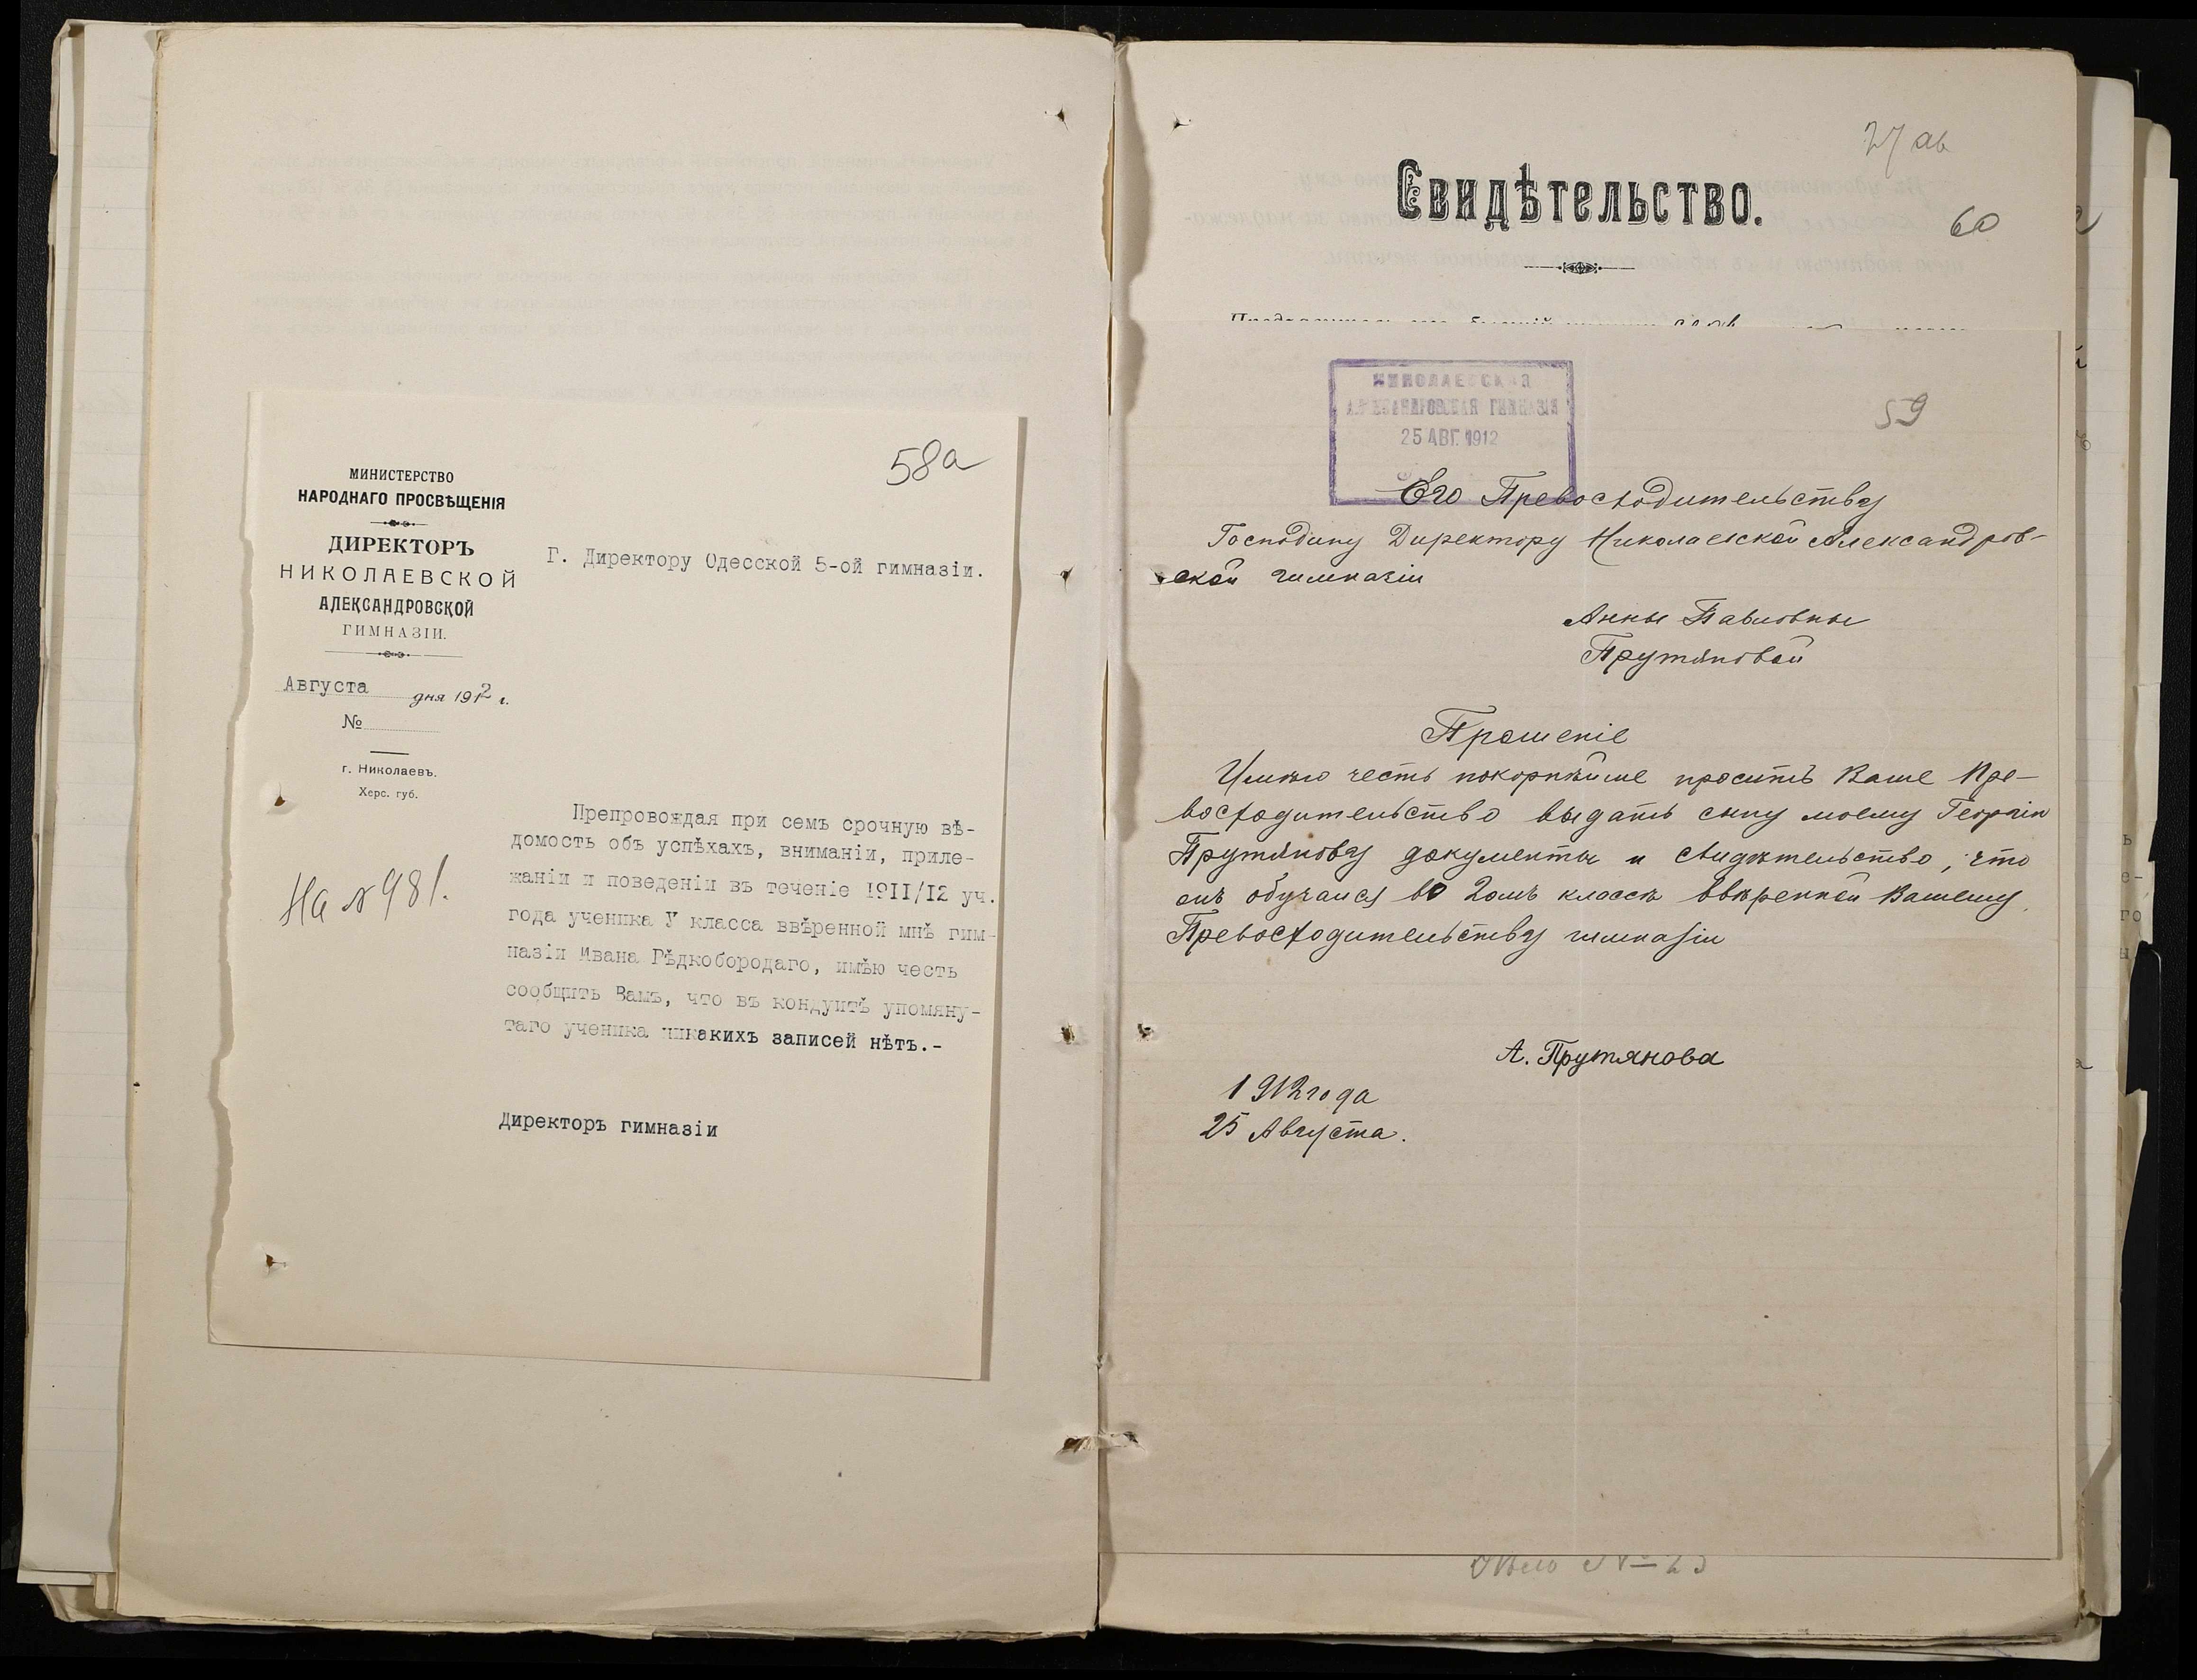 58а
МИНИСТЕРСТВО
НАРОДНАГО ПРОСВѢЩЕНІЯ
ДИРЕКТОРЪ
НИКОЛАЕВСКОЙ
АЛЕКСАНДРОВСКОЙ
ГИМНАЗІИ.
Августа дня 1912 г.
№
г. Николаевъ.
Херс. губ.
На № 981.
Г. Директору Одесской 5-ой гимназіи.
Препровождая при семъ срочную вѣ-
домость объ успѣхахъ, вниманіи, приле-
жаніи и поведеніи въ теченіе 1911/12 уч.
года ученика У класса ввѣренной мнѣ гим-
назіи Ивана Рѣдкобородаго, имѣю честь
сообщить Вамъ, что въ кондуитѣ упомяну-
таго ученика никакихъ записей нѣтъ.-
Директоръ гимназіи
27 ав
Свидѣтельство.
60
НИКОЛАЕВСКАЯ
АЛЕКСАНДРОВСКАЯ ГИМНАЗІЯ
25 АВГ. 1912
59
Его Превосходительству
Господину Директору Николаевской Александров-
ской гимназіи
Анны Павловны
Прутяновой
Прошеніе
Имѣю честь покорнѣйше просить Ваше Пре-
восходительство выдать сыну моему Георгію
Прутянову документы и свидѣтельство, что
онъ обучался во 2омъ классѣ ввѣренной Вашему
Превосходительству гимназіи
А. Прутянова
1912 года
25 Августа.